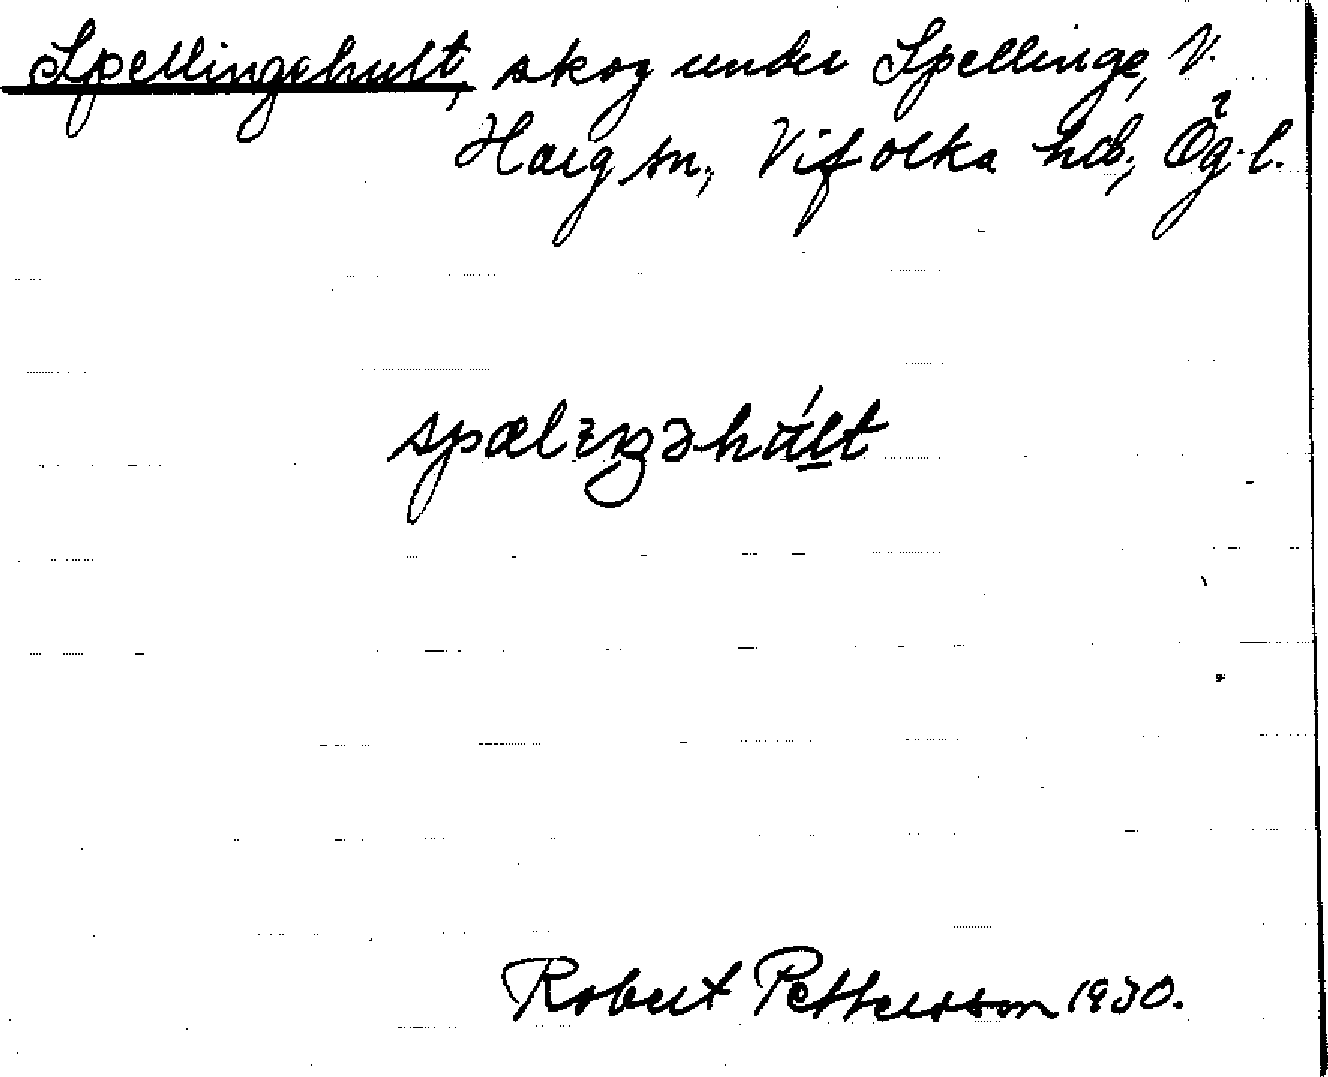 Spellingehult, skog under Spellinge, V.
Harg sn, Vifolka hd, Ög. l.
spælıŋəhúlt
Robert Pettersson 1930.